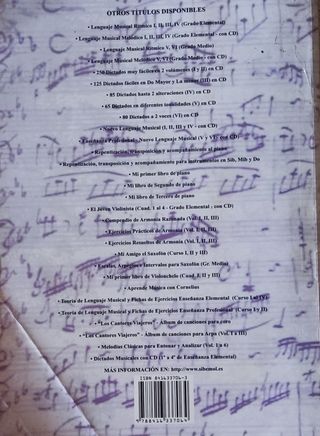 OTROS TITULOS DISPONIBLES
• Lenguaje Musical Rítmico I, II, III, IV (Grado Elemental)
• Lenguaje Musical Melódico I, II, III, IV (Grado Elemental - con CD)
• Lenguaje Musical Rítmico V, VI (Grado Medio)
• Lenguaje Musical Melódico V, VI (Grado Medio - con CD)
• 250 Dictados muy fáciles en 2 volúmenes (I y II) en CD
• 125 Dictados fáciles en Do Mayor y La menor (III) en CD
• 85 Dictados hasta 2 alteraciones (IV) en CD
• 65 Dictados en diferentes tonalidades (V) en CD
• 80 Dictados a 2 voces (VI) en CD
• Nuevo Lenguaje Musical (I, II, III y IV - con CD)
• Enseñanza Profesional - Nuevo Lenguaje Musical (V y VI - con CD)
• Repentización, transposición y acompañamiento al piano
• Repentización, transposición y acompañamiento para instrumentos en Sib, Mib y Do
• Mi primer libro de piano
• Mi libro de Segundo de piano
• Mi libro de Tercero de piano
• El Joven Violinista (Cuad. 1 al 4 - Grado Elemental - con CD)
• Compendio de Armonía Razonada (Vol. I, II, III)
• Ejercicios Prácticos de Armonía (Vol. I, II, III)
• Ejercicios Resueltos de Armonía (Vol. I, II, III)
• Mi Amigo el Saxofón (Curso I, II y III)
• Escalas, Arpegios e Intervalos para Saxofón (Gr. Medio)
• Mi primer libro de Violonchelo (Cuad. I, II y III)
• Aprende Música con Cornelius
• Teoría de Lenguaje Musical y Fichas de Ejercicios Enseñanza Elemental (Curso I al IV)
• Teoría de Lenguaje Musical y Fichas de Ejercicios Enseñanza Profesional (Curso I y II)
• "Los Cantores Viajeros" - Álbum de canciones para coro
• "Los Cantores Viajeros" - Álbum de canciones para Arpa (Vol. I a III)
• Melodías Clásicas para Entonar y Analizar (Vol. 1 a 6)
• Dictados Musicales con CD (1º a 4º de Enseñanza Elemental)
MÁS INFORMACIÓN EN: http://www.sibemol.es
ISBN 8416337043
9788416337040